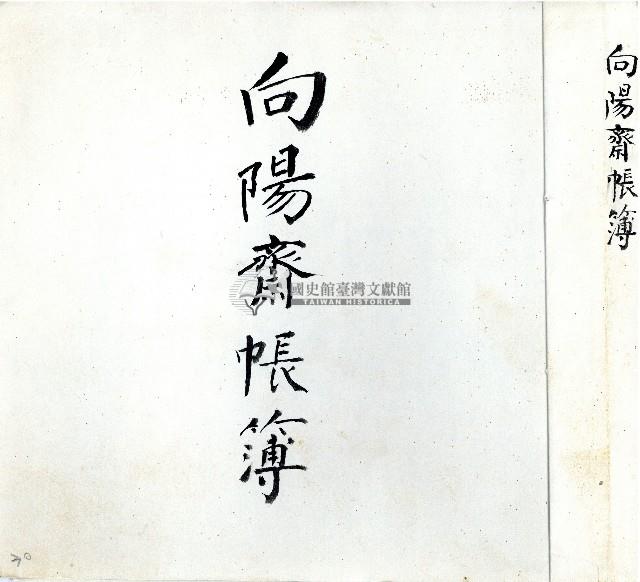 向陽齋帳簿
向陽齋帳簿
國史館臺灣文獻館
TAIWAN HISTORICA